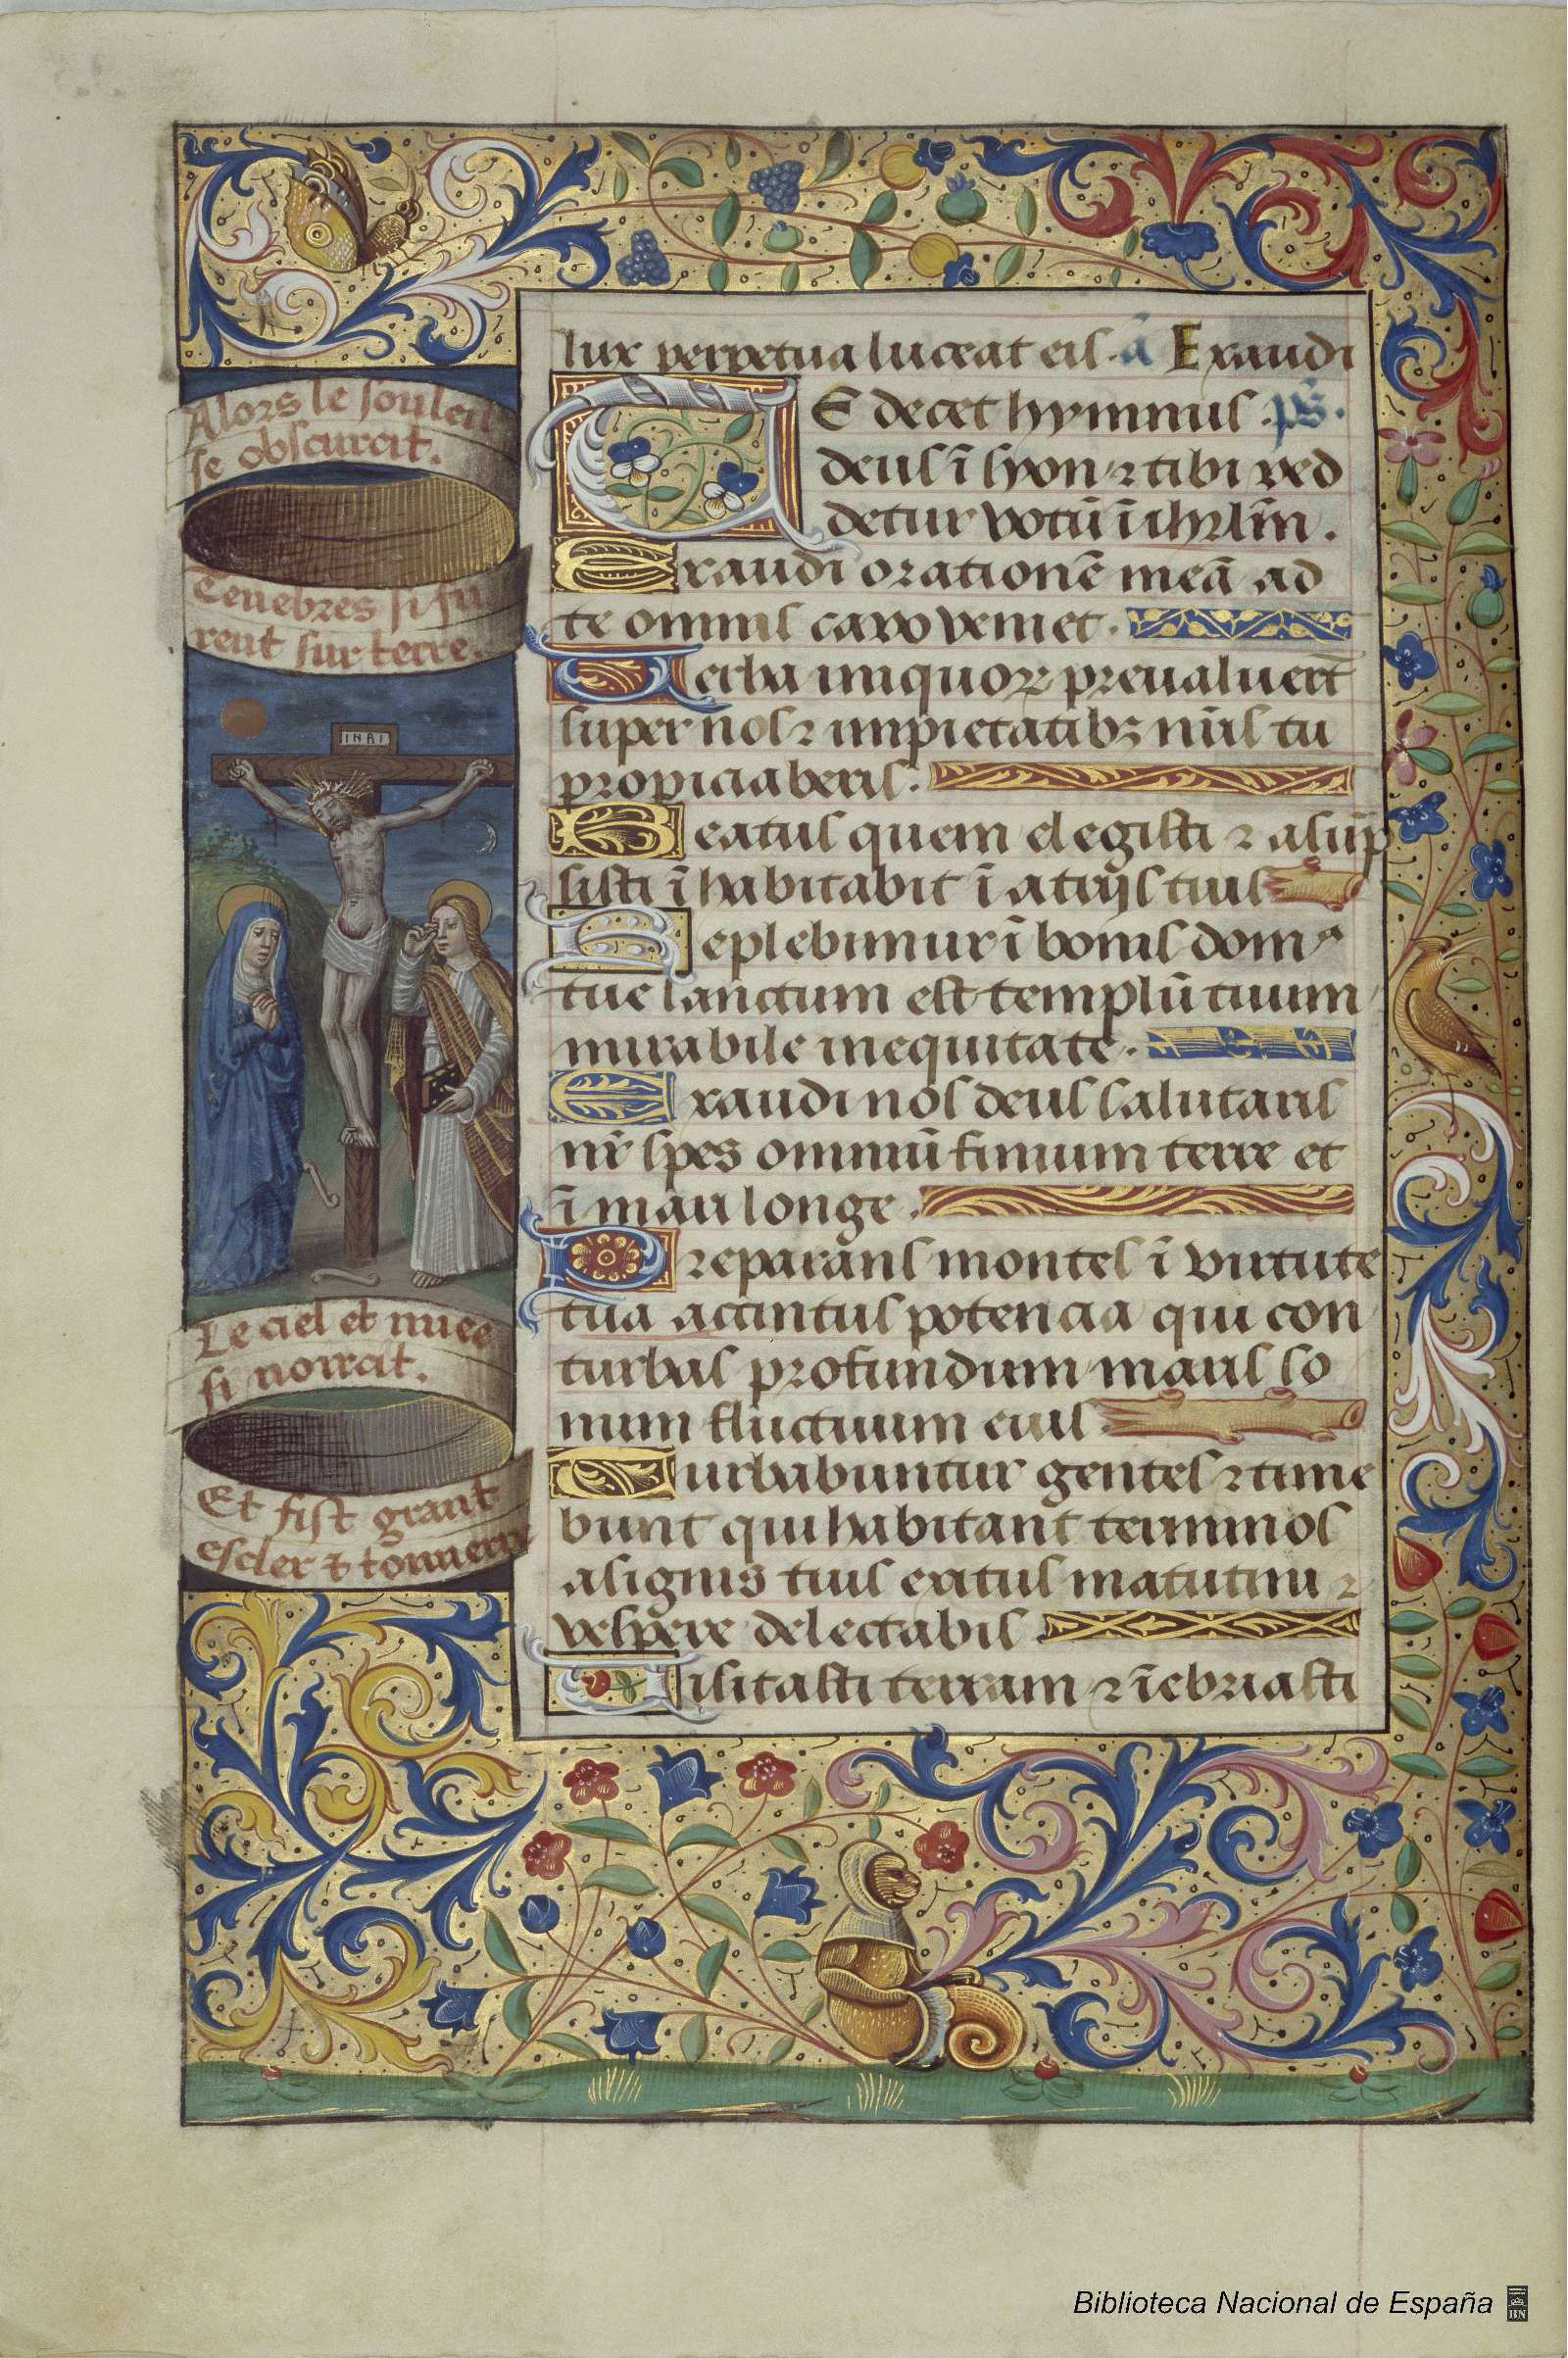 Alors le souleil
se obscurcit.
Tenebres si fu
rent sur terre.
INRI
Le ciel et nuee
si noircit.
Et fist grant
escler & tonnerre
lux perpetua luceat eis. a̅ Exaudi
TE decet hymnus .ps̅.
deus ī syon ⁊ tibi red
detur votū ī ihrlm̄.
Exaudi orationē meā ad
te omnis caro veniet.
Verba iniquoꝝ preualuert̄
super nos ⁊ impietatibꝫ nr̄is tu
propiciaberis.
Beatus quem elegisti ⁊ asūp
sisti īhabitabit ī atrijs tuis
Replebimur ī bonis domꝰ
tue sanctum est templū tuum
mirabile in equitate.
Exaudi nos deus salutaris
nr̄ spes omniū finium terre et
ī mari longe.
Preparans montes ī virtute
tua accintus potencia qui con
turbas profundum maris so
num fluctuum eius.
Turbabuntur gentes ⁊ time
bunt qui habitant terminos
a signis tuis exitus matutini ⁊
vespere delectabis
Uisitasti terram ⁊ īebriasti
Biblioteca Nacional de España
BN